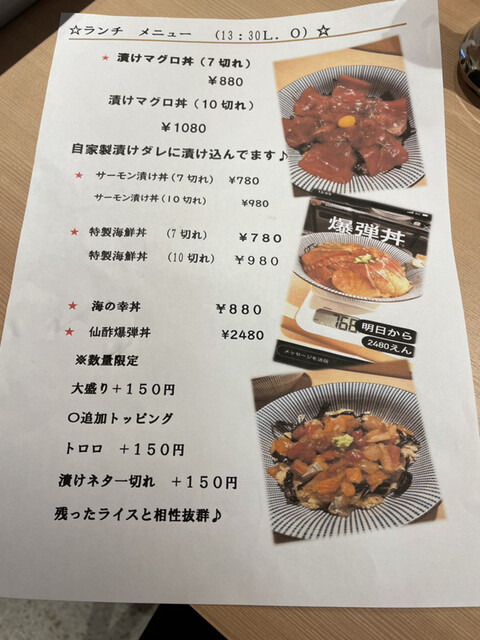 ☆ランチ メニュー (13:30L.O)☆
★ 漬けマグロ丼(7切れ)
¥880
漬けマグロ丼(10切れ)
¥1080
自家製漬けダレに漬け込んでます♪
★ サーモン漬け丼(7切れ) ¥780
サーモン漬け丼(10切れ) ¥980
★ 特製海鮮丼 (7切れ) ¥780
特製海鮮丼 (10切れ) ¥980
★ 海の幸丼 ¥880
★ 仙酢爆弾丼 ¥2480
※数量限定
大盛り+150円
〇追加トッピング
トロロ +150円
漬けネタ一切れ +150円
残ったライスと相性抜群♪
爆弾丼
768
明日から
2480えん
メッセージを送信